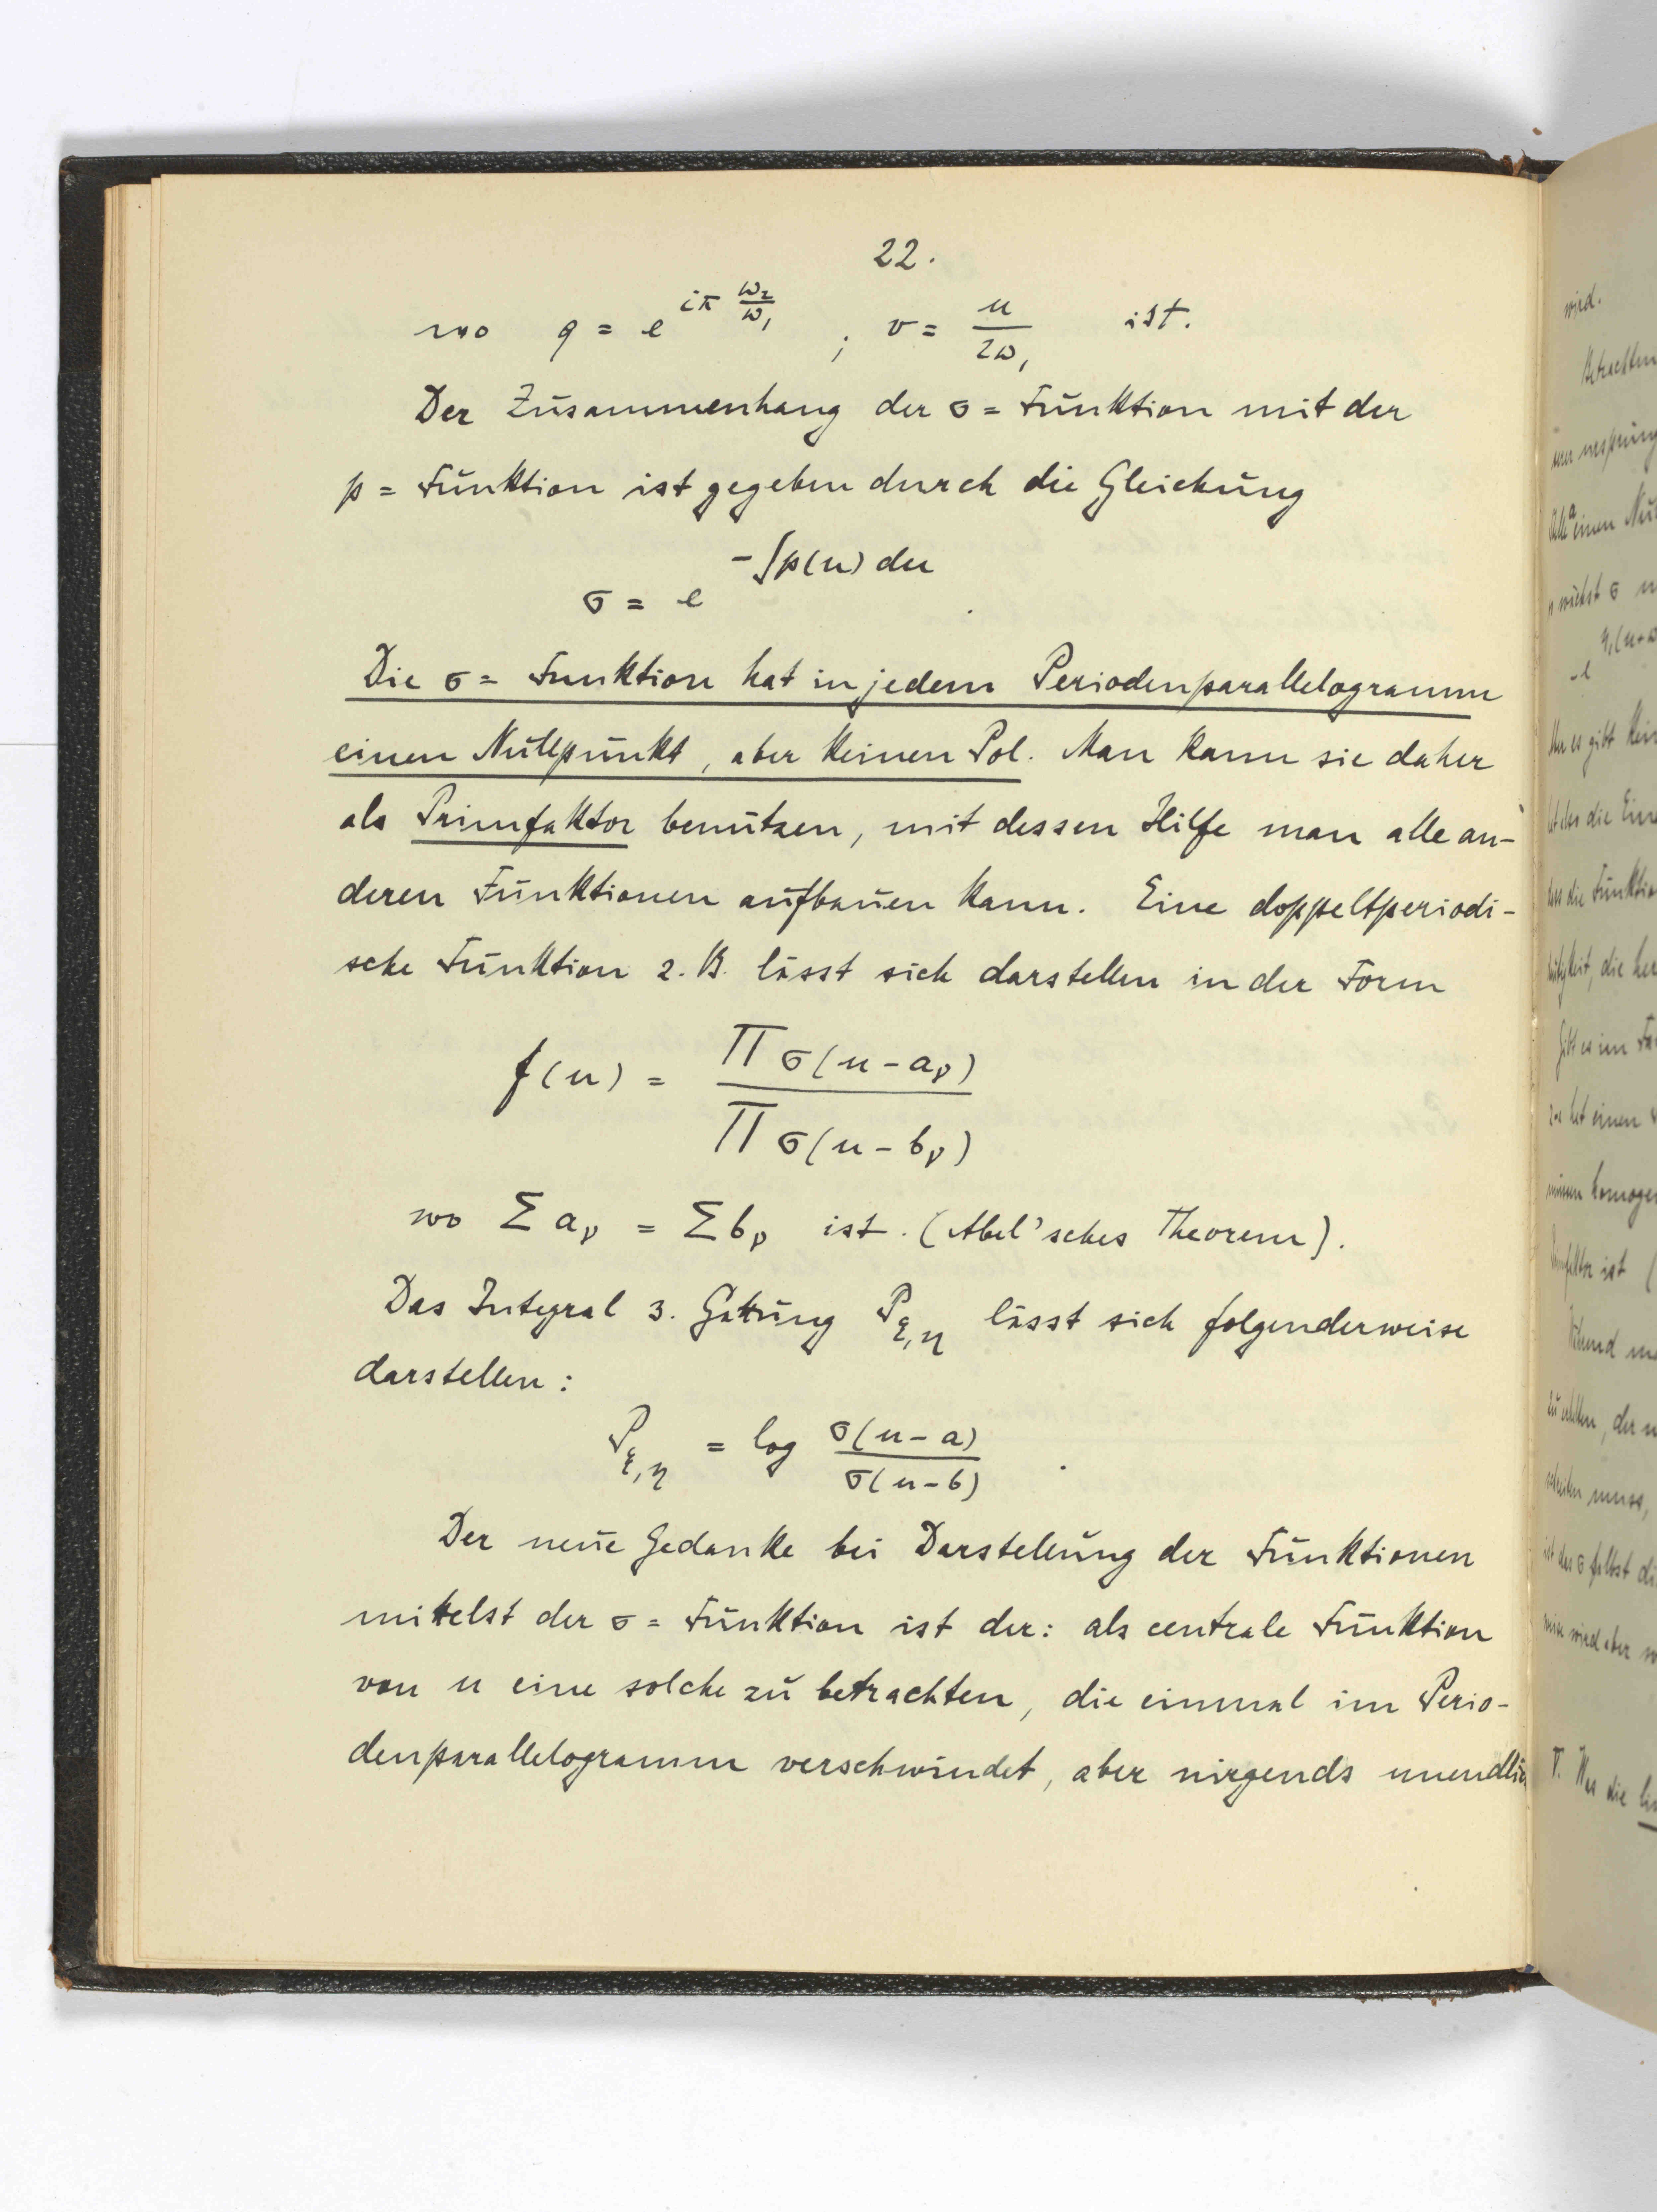 22.
wo q = e^{iπ ω₂/ω₁} ; v = u/2ω₁ ist.
Der Zusammenhang der σ = Funktion mit der
p = Funktion ist gegeben durch die Gleichung
σ = e^{-∫p(u) du}
Die σ = Funktion hat in jedem Periodenparallelogramm
einen Nullpunkt, aber keinen Pol. Man kann sie daher
als Primfaktor benutzen, mit dessen Hilfe man alle an-
deren Funktionen aufbauen kann. Eine doppeltperiodi-
sche Funktion z. B. lässt sich darstellen in der Form
f(u) = Π σ(u - aᵥ) / Π σ(u - bᵥ)
wo Σ aᵥ = Σ bᵥ ist. (Abel'sches Theorem).
Das Integral 3. Gattung P_{ξ,η} lässt sich folgenderweise
darstellen:
P_{ξ,η} = log σ(u - a) / σ(u - b) .
Der neue Gedanke bei Darstellung der Funktionen
mittelst der σ = Funktion ist der: als centrale Funktion
von u eine solche zu betrachten, die einmal im Perio-
denparallelogramm verschwindet, aber nirgends unendlich
wird.
Betrachten